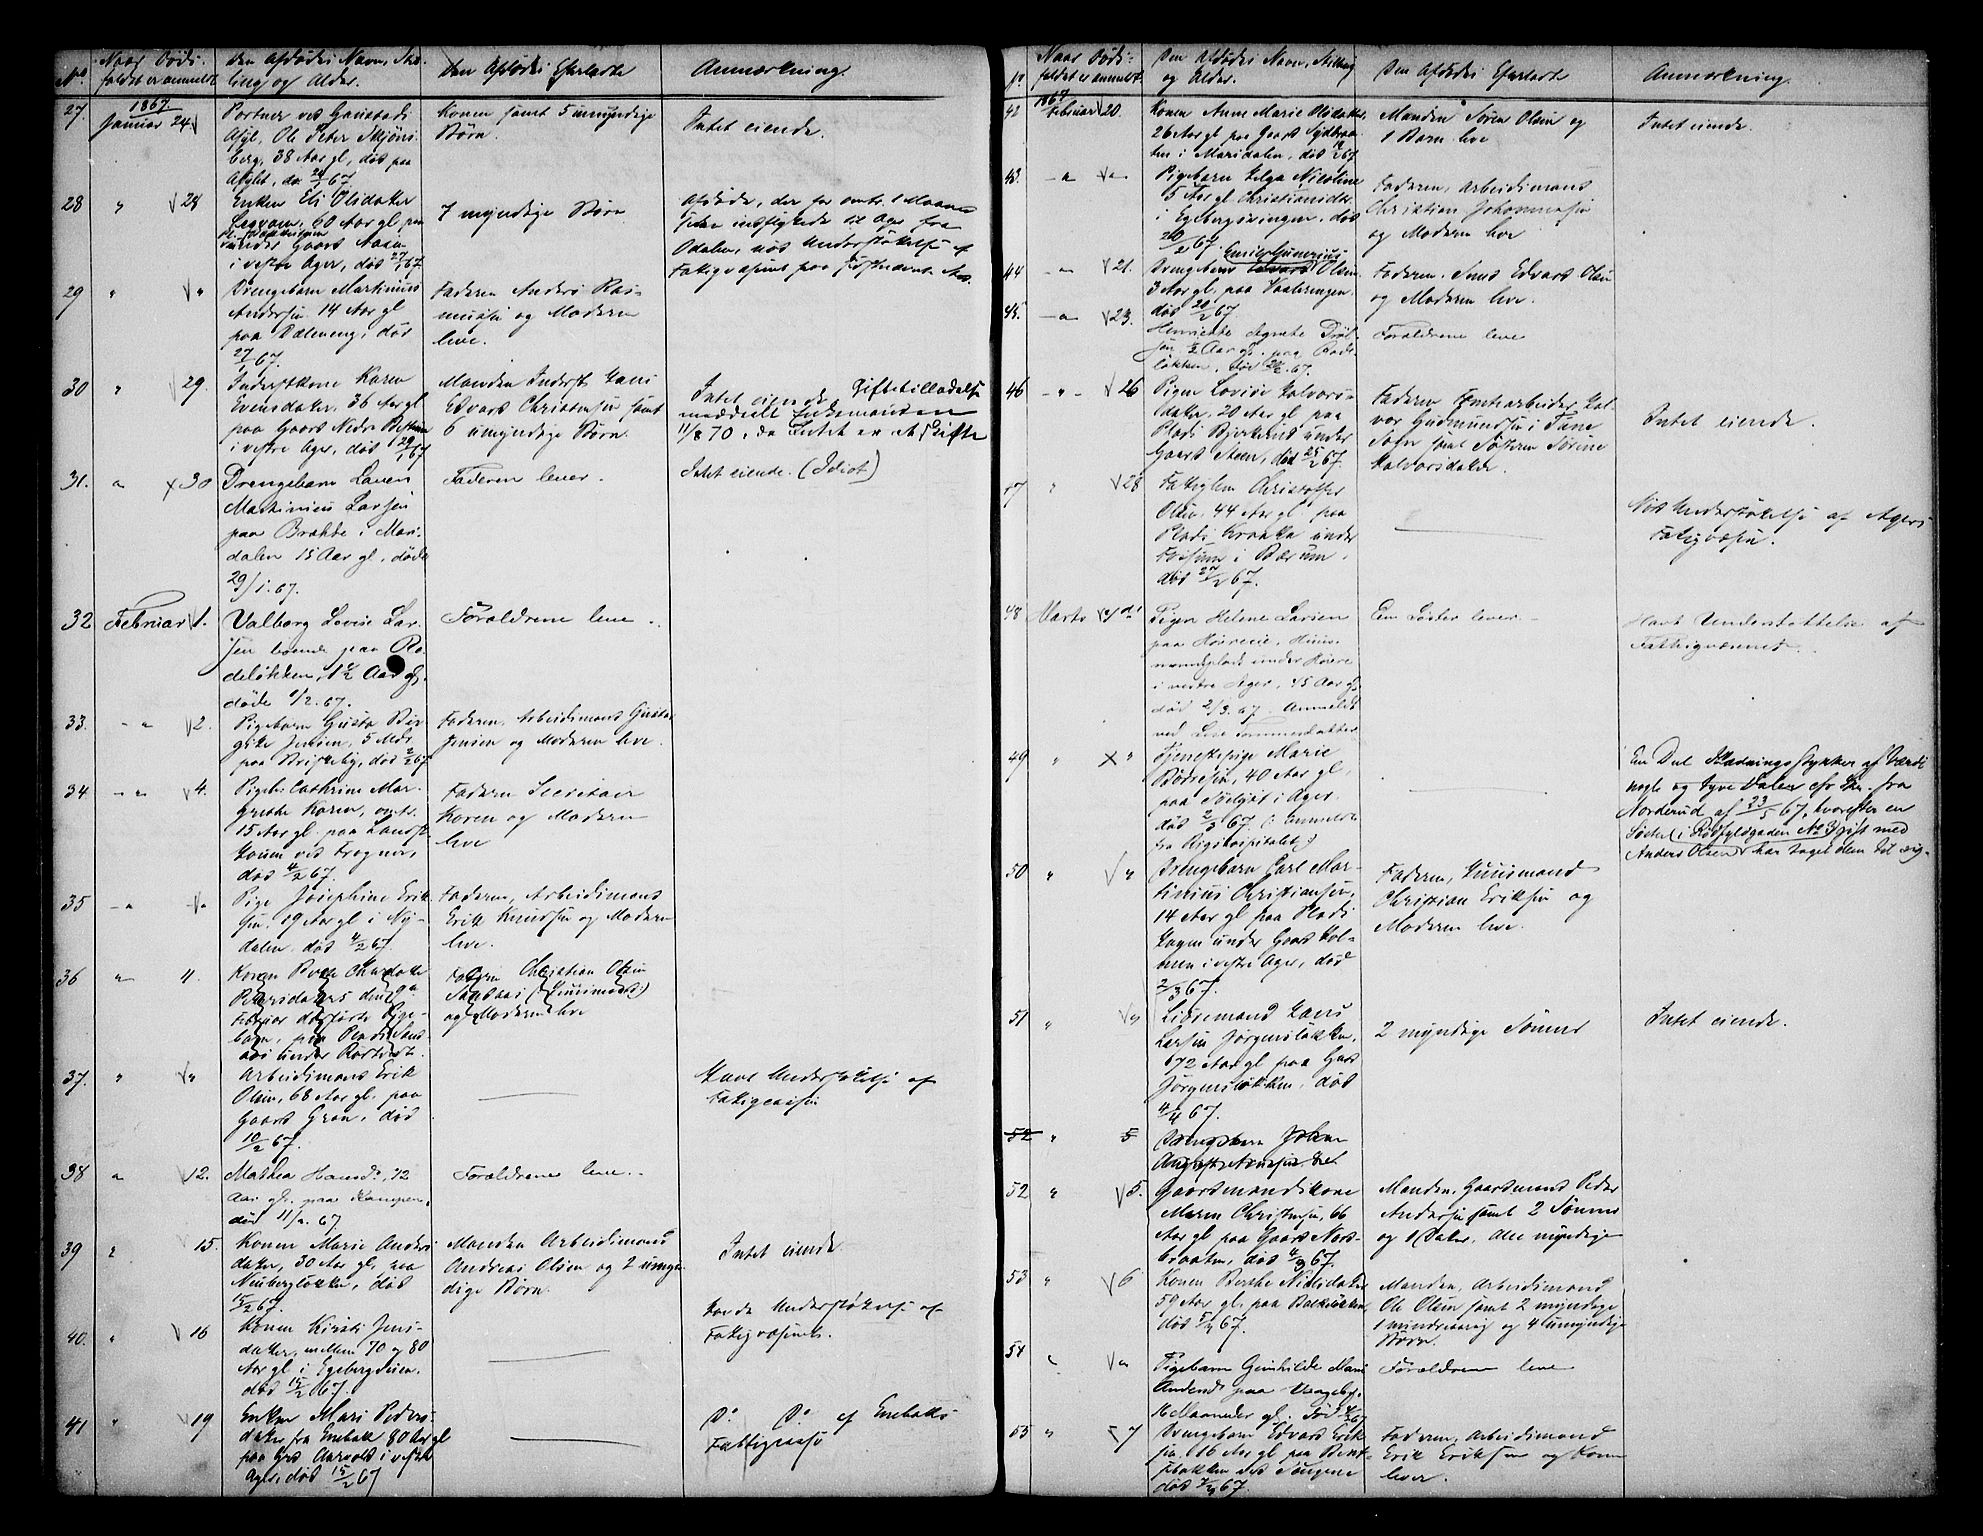 No
Naar Döds-
faldet er anmeldt.
Den Afdödes Navn, Stil-
ling og Alder.
Den Afdödes Efterladte
Anmærkning.
27.
1867.
Januar 24
Portner ved Gaustad
Asyl, Ole Peter Skjöns-
berg, 38 Aar gl, död paa
Asylet, d. 24/1 67
Konen samt 5 umyndige
Börn.
Intet eiende.
28
"
28
Enken Eli Olsdatter
60 Aar gl paa
under Gaard
i vestre Ager, död 27/1 67
7 myndige Börn
Afdöde, der for omtr. 1 Maaned
siden indflyttede til Ager fra
Odalen, nöd Understöttelse af
Fattigvæsenet paa sidstnævnte Sted.
29
"
"
Drengebarn Martinius
Andersen 14 Aar gl
paa Dæleneng, död
27/1 67.
Faderen Anders Ras-
mussen og Moderen
leve.
30
"
29.
Inderstkone Karen
Evensdatter, 36 Aar gl
paa Gaard Nedre
i vestre Ager, död 29/1 67
Manden Inderst Hans
Edvard Christensen samt
6 umyndige Börn.
Intet eiende Giftetilladelse
meddelt Enkemanden
11/8 70, da Intet er at skifte
31.
"
30
Drengebarn Lauri
Martinius Larsen
paa Brække i Mari-
dalen 15 Aar gl, döde
29/1.67.
Faderen lever.
Intet eiende. (Idiot)
32
Februar 1.
Valborg Lovise Lar-
sen boende paa Ro-
delökken, 1½ Aar gl.
döde 1/2.67.
Forældrene leve.
33.
"
2.
Pigebarn Gusta Bir-
gitte Jensen, 5 Mdr
paa Briskeby, död 2/2 67
Faderen, Arbeidsmand Gustav
Jensen og Moderen leve.
34.
"
4.
Pigeb. Cathrine Mar-
grethe Koren, omtr.
15 Aar gl. paa
ved Frogner,
död 4/2 67.
Faderen Secretair
Koren og Moderen
leve
35
"
"
Pige Josephine Erik-
sen, 19 Aar gl i Ny-
dalen, död 4/2 67.
Faderen, Arbeidsmand
Erik Knudsen og Moderen
leve.
36
"
4.
Konen
Februar Pige-
barn, paa Plads
under
Faderen Christian Olsen
(Huusmand)
og Moderen leve
37.
"
"
Arbeidsmand Erik
Olsen, 68 Aar gl. paa
Gaard Gran, död
10/2 67.
Havt Understöttelse af
Fattigvæsen
38
"
12.
Mathea Hansd., 12
Aar gl. paa Kampen,
död 11/2. 67
Forældrene leve.
39
"
15.
Konen Marie Anders-
datter, 30 Aar gl, paa
Neuberglökken, död
15/2 67.
Manden Arbeidsmand
Andreas Olsen og 2 umyn-
dige Börn.
Intet eiende.
40.
"
16
Konen Kirsti Jens-
datter, mellem 70 og 80
Aar gl i Egebergveien,
död 15/2 67.
Havde Understöttelse af
Fattigvæsenet.
41
"
19
Enken Mari Peders-
datter fra Enebak 80 Aar gl
paa Grd Aarvold i vestre
Ager, död 15/2 67
Do Do af Enebaks
Fattigvæsen
No
Naar Döds-
faldet er anmeldt.
Den Afdödes Navn, Stilling
og Alder.
Den Afdödes Efterladte
Anmærkning.
42
1867
Februar 20.
Konen Anne Marie Olsdatter,
26 Aar gl paa Gaard Sydbraa-
ten i Maridalen, död 67
Manden Sören Olsen og
1 Barn leve
Intet eiende.
43.
"
"
Pigebarn Helga Nicoline
5 Aar gl Christiansdtr
i Egebergsvingen, död
20/2 67.
Faderen, Arbeidsmand
Christian Johannesen
og Moderen leve
44
"
21.
Emil Gunerius
Drengebarn Edvard Olsen
3 Aar gl. paa Vaalerengen,
död 20/2 67
Faderen, Smed Edvard Olsen
og Moderen leve.
45.
"
23.
Henriette Agnete
½ Aar gl. paa Rode-
lökken, död 67.
Forældrene leve
46
"
26
Pigen Lovise Halvors-
datter, 20 Aar gl paa
Plads Bjerkelund under
Gaard Steen, död 25/2 67.
Faderen Halvor
Gudmundsen i Tune
Sogn samt Söstern Sörine
Halvorsdatter.
Intet eiende.
47
"
28
Fattiglem Christoffer
Olsen, 44 Aar gl. paa
Plads Kraakka under
i Bærum,
död 27/2 67.
Nöd Understöttelse af Agers
Fattigvæsen.
48
Marts
Pigen Helene Larsen
paa Höiveie, Huus-
mandsplads under
i vestre Ager, 45 Aar gl.
död 2/3.67. Anmeldt
ved Lise Tommesdatter
En Söster lever.
Havt Understöttelse af
Fattigvæsenet.
49
"
"
Tjenestepige Marie
40 Aar gl,
paa i Ager,
död 2/3 67. (Anmeldt
fra Rigshospitalet)
En Deel Klædningsstykker af Værdi
nogle og tyve Daler cfr Skr. fra
Norderud af 23/5 67, hvorefter en
Söster (i Rödfyldgaden No 3) gift med
Anders Olsen har taget dem til sig.
50
"
"
Drengebarn Carl Mar-
tinius Christiansen,
14 Aar gl paa Plads
Hagen under Gaard Hol-
men i vestre Ager, död
2/3 67.
Faderen, Huusmand
Christian Eriksen og
Moderen leve.
51
"
"
Lidsemand Hans
Larsen Jörgenslökken,
672 Aar gl paa Gard
Jörgenslökken, död
4/4 67.
2 myndige Sönner
Intet eiende.
52
"
5
Drengebarn Johan
August
52
"
5.
Gaardmandskone
Maren Christensen, 66
Aar gl paa Gaard Nord-
braaten, död 67.
Manden, Gaardmand Peder
Andersen samt 2 Sönner
og 1 Datter, alle myndige
53
"
6
Konen Berthe Nielsdatter
59 Aar gl. paa Balkelökken,
död 67.
Manden, Arbeidsmand
Ole Olsen samt 2 myndige
1 mindreaarig og 4 umyndige
Börn.
54
"
"
Pigebarn Gunhilde Marie
paa Vaageby,
16 Maaneder gl. död 67
Forældrene leve
55
"
7
Drengebarn Edvard Erik-
sen, 16 Aar gl paa
ved Sognene
död 67.
Faderen, Arbeidsmand
Erik Eriksen og Konen
lever.